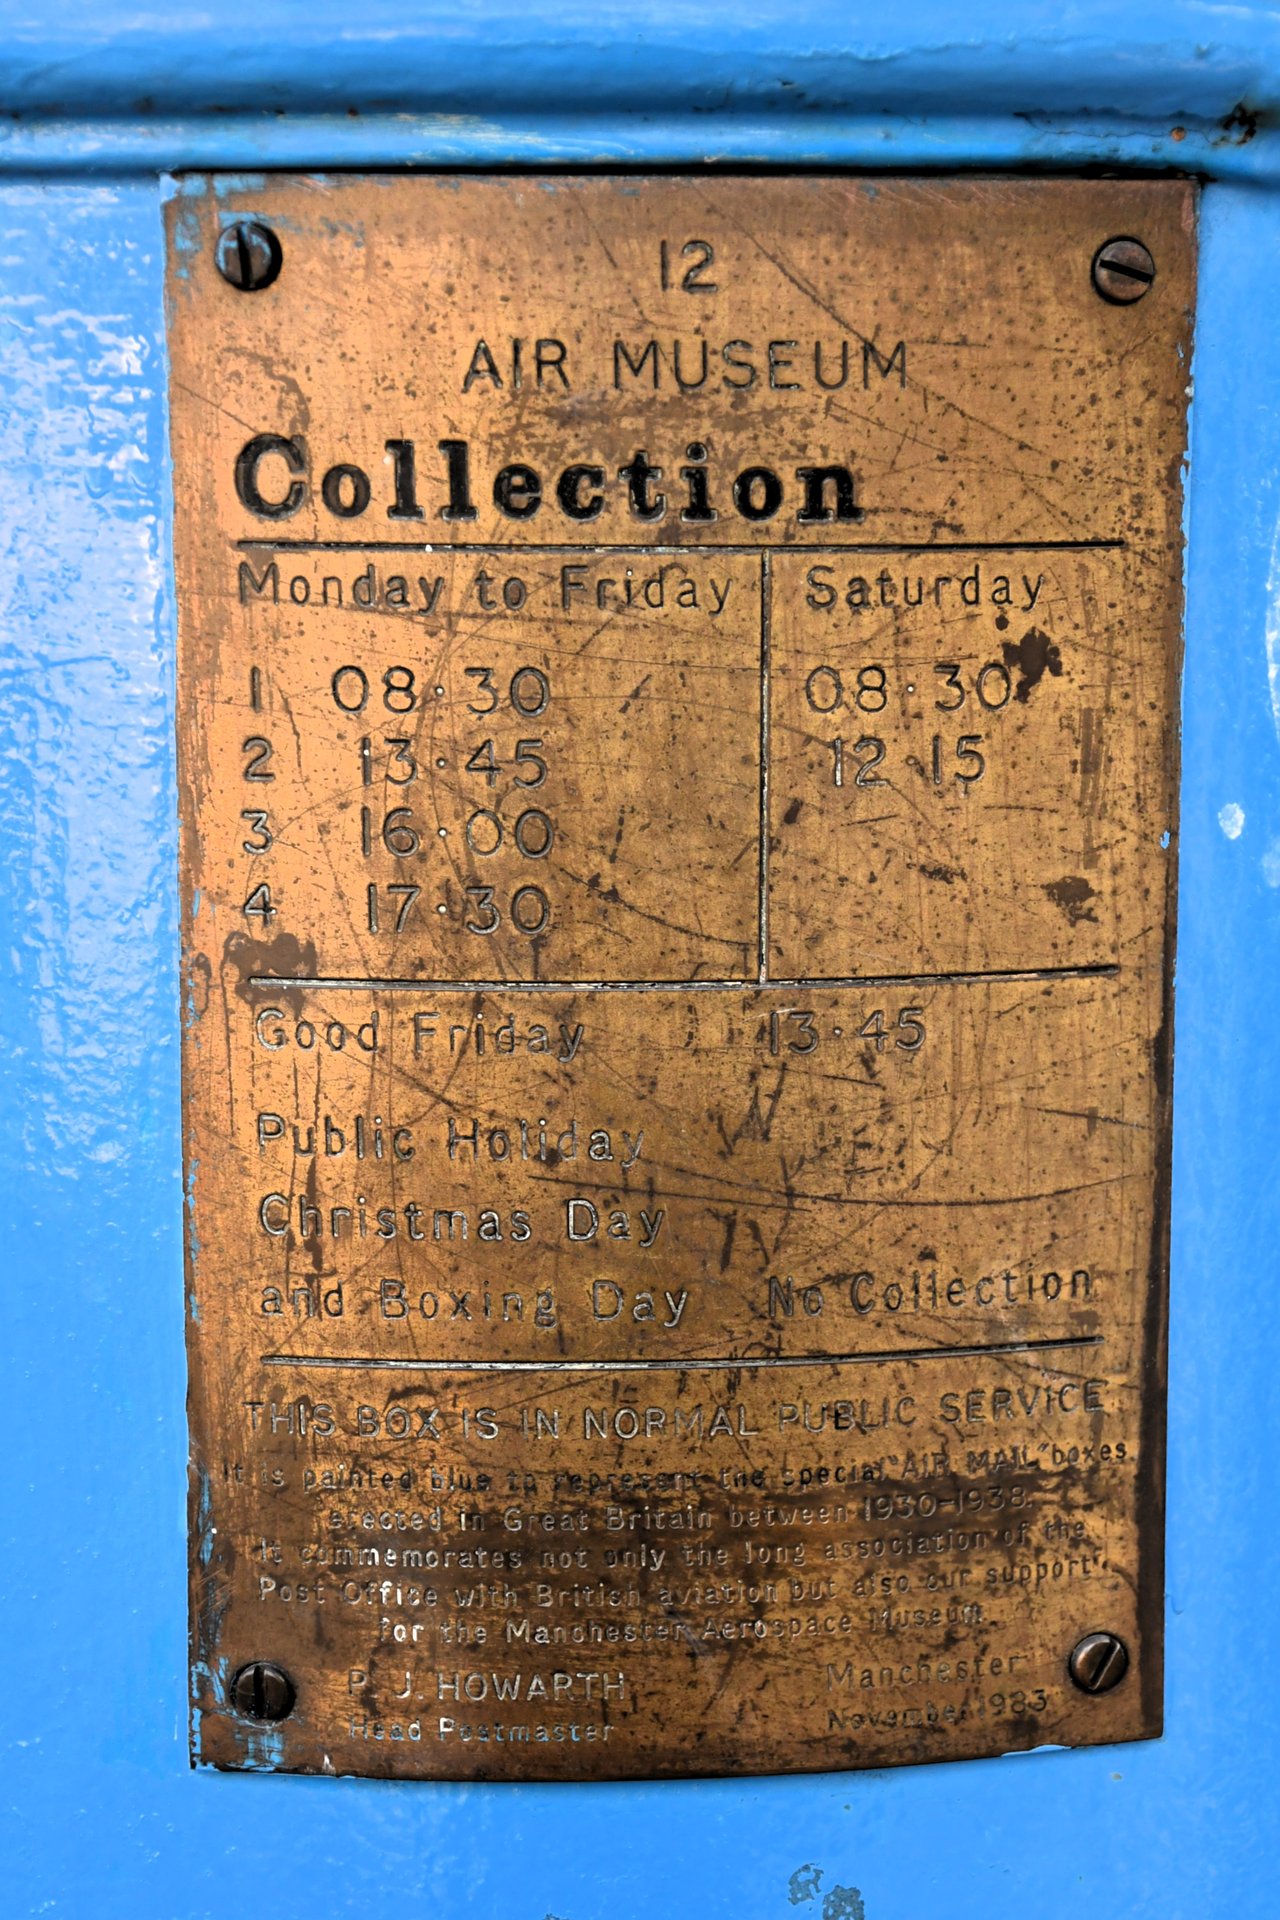 12
AIR MUSEUM
Collection
Monday to Friday Saturday
1 08·30 08·30
2 13·45 12·15
3 16·00
4 17·30
Good Friday 13·45
Public Holiday
Christmas Day
and Boxing Day No Collection
THIS BOX IS IN NORMAL PUBLIC SERVICE
It is painted blue to represent the special "AIR MAIL" boxes
erected in Great Britain between 1930-1938.
It commemorates not only the long association of the
Post Office with British aviation but also our support
for the Manchester Aerospace Museum
P. J. HOWARTH Manchester
Head Postmaster November 1983